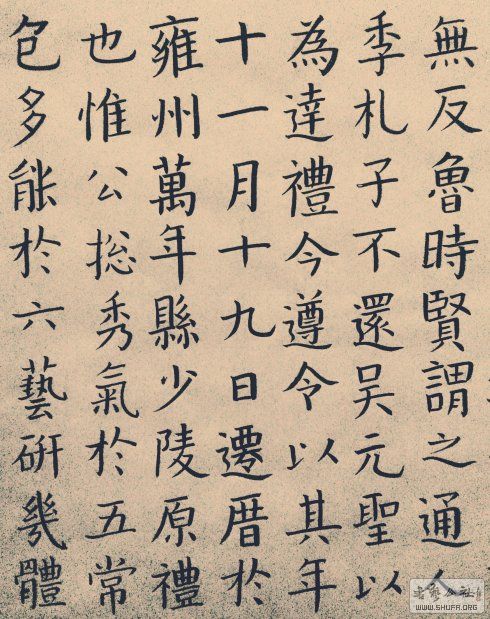 無反魯時賢謂之通人
季札子不還吳元聖以
為達禮今遵令以其年
十一月十九日遷厝於
雍州萬年縣少陵原禮
也惟公揔秀氣於五常
包多能於六藝研幾體
WWW.SHUFA.ORG